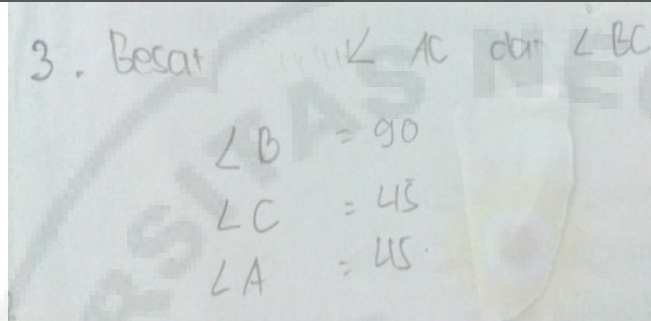 3. Besar ∠ AC dan ∠ BC
∠B = 90
∠C = 45
∠A = 45